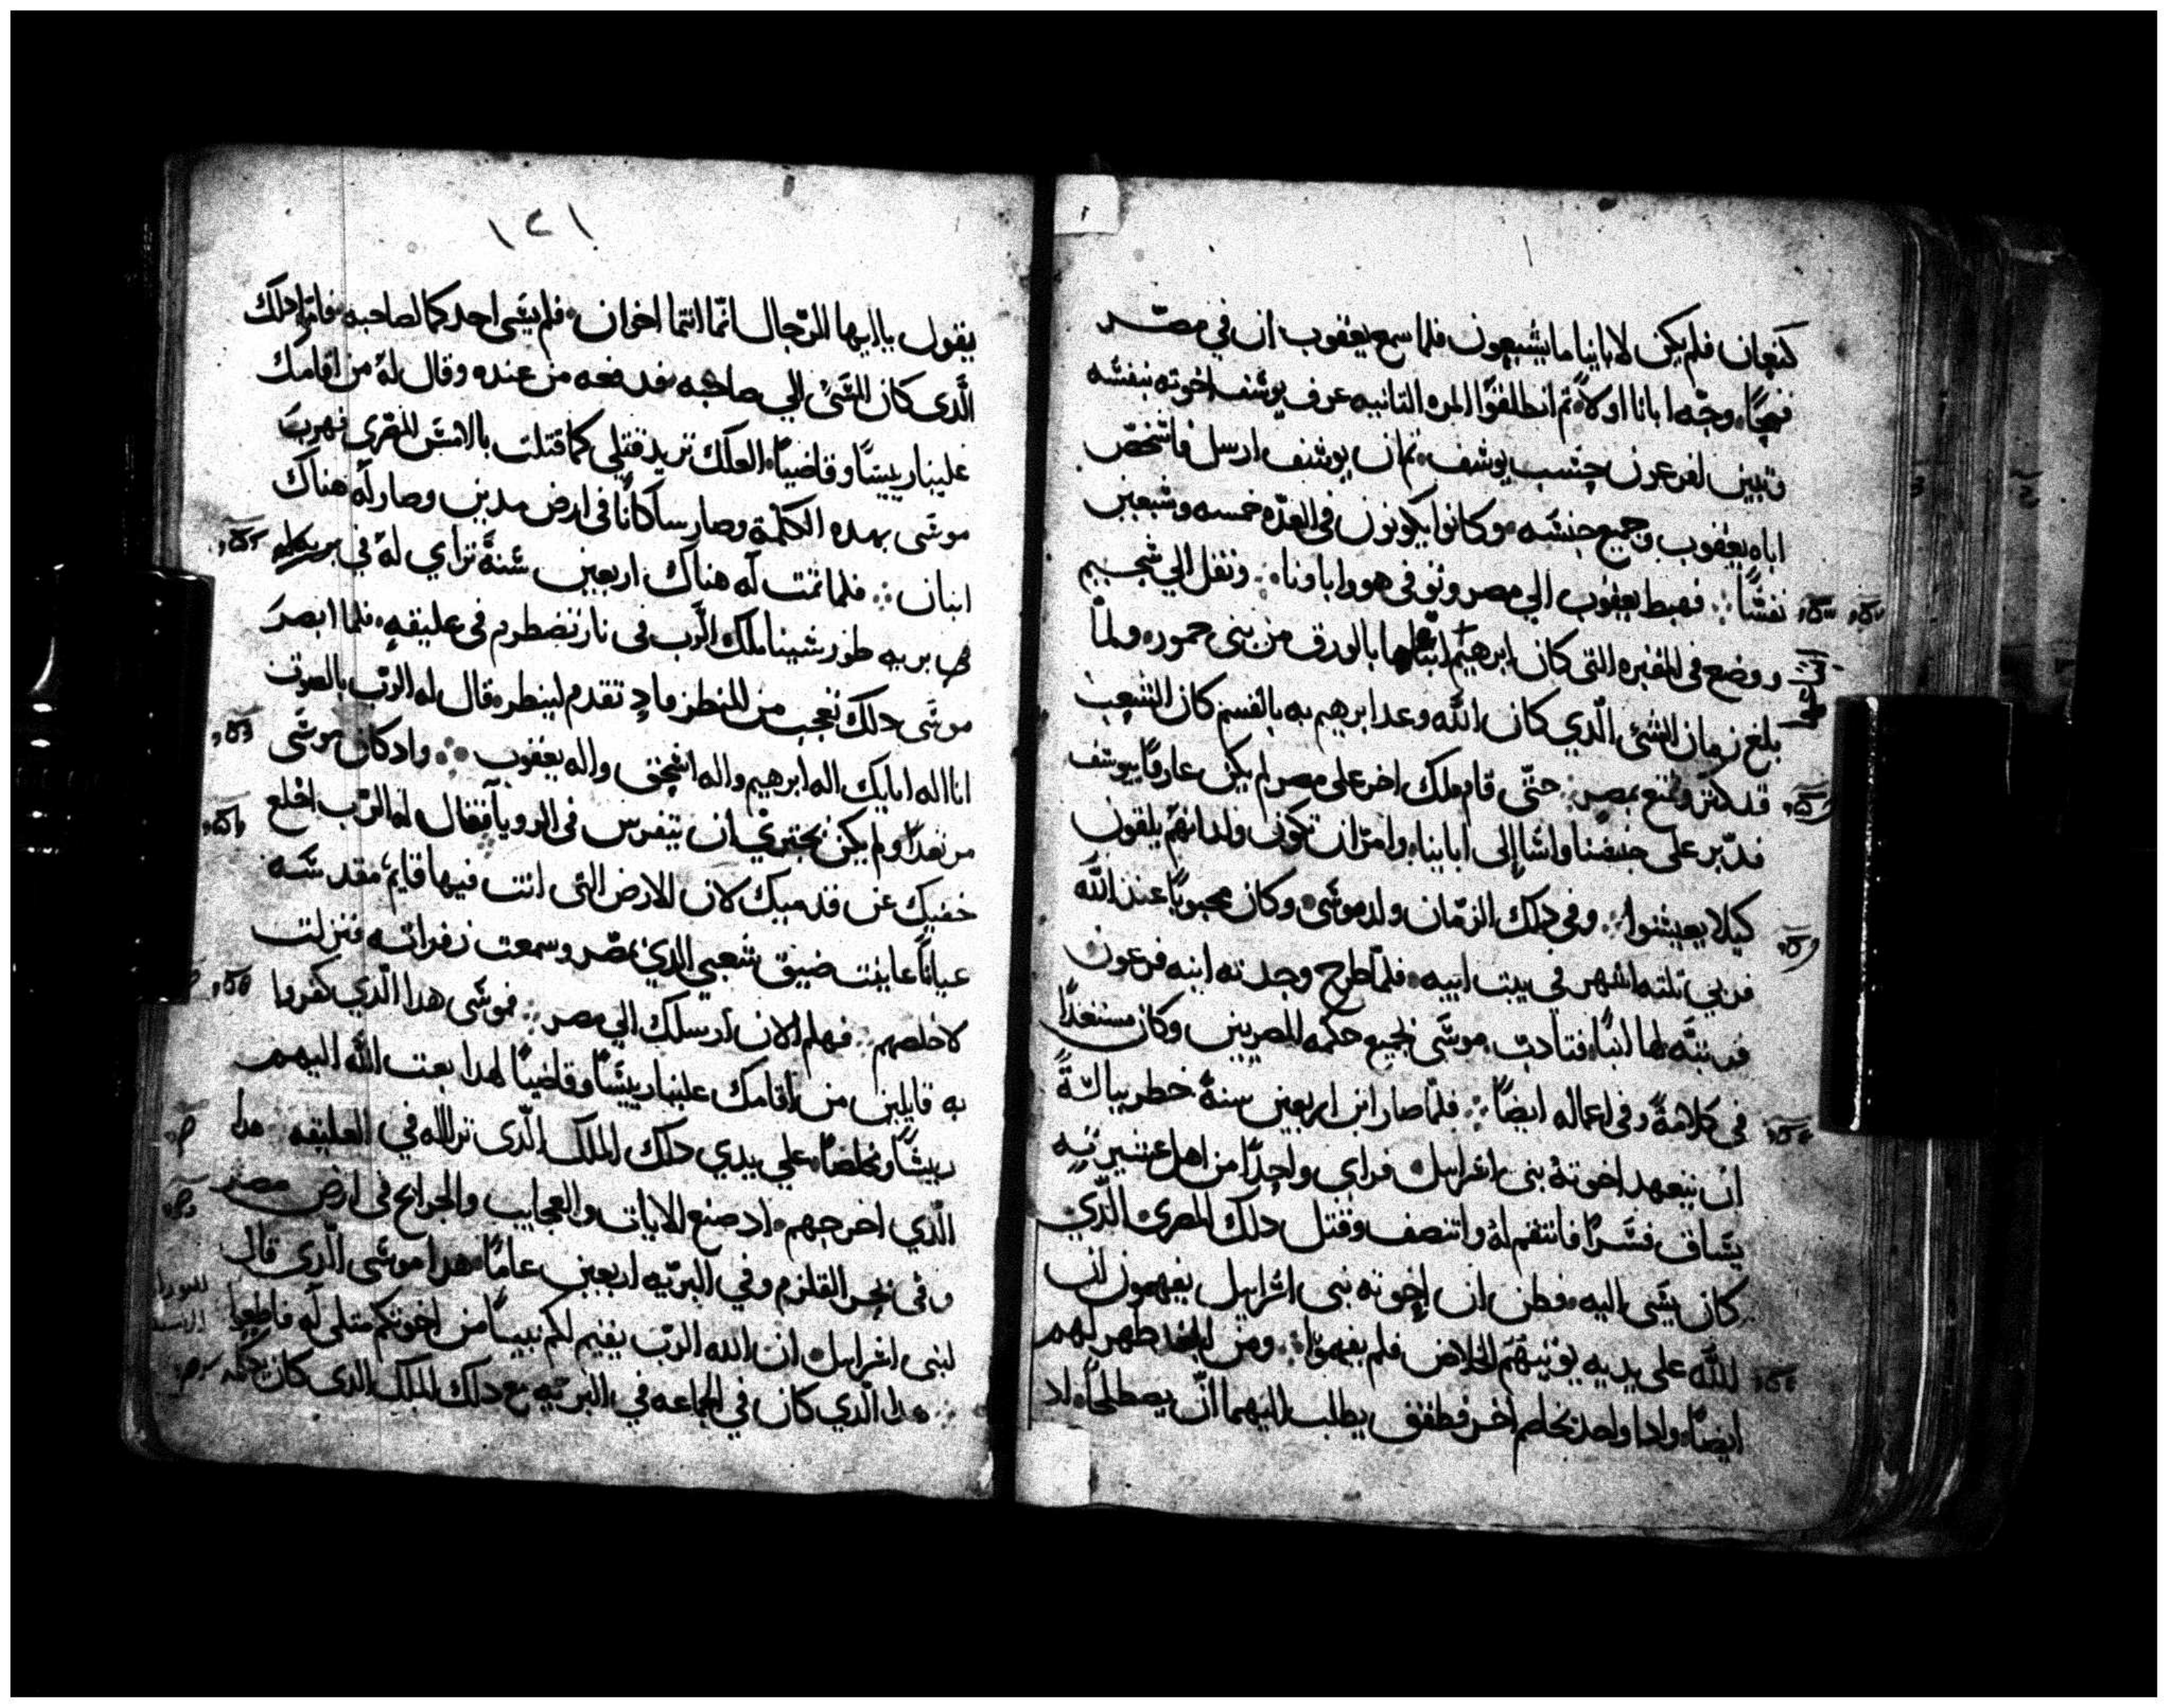 كنعان فلم يكن لابائنا ما يشبعون فلما سمع يعقوب ان في مصر
قمحًا، وجّه ابانا اولاً، ثم انطلقوا المره التانيه عرف يوسف اخوته بنفسه
وتبين لفرعون جنس يوسف، ثم ان يوسف ارسل فاشخص
اباه يعقوب وجميع جنسه، وكانوا يكونون في العدّه خمسه وسبعين
نفسًا ، فهبط يعقوب الي مصر وتوفى هو واباونا ، ونقل الي شجيم
ووضع في المقبره التي كان ابرهيم ابتاعها بالورق من بني حمور، ولمّا
بلغ زمان الشئ الّذي كان اللّه وعد ابرهيم به بالقسم كان الشعب
قد كثر وامتنع بمصر ، حتّي قام ملك اخر على مصر لم يكن عارفًا بيوسف
فدّبر على جنسنا واسا إلى ابائنا، وامر ان تكون ولدانهم يلقون
كيلا يعيشوا ، وفي دلك الزمّان ولد موسَى، وكان محبوبًا عند اللّه
فربي تلته اشهر في بيت ابيه، فلمّا طرح وجدته ابنه فرعون
فربتَّه لها ابنًا، فتادب موسَى بجميع حكمه المصريين وكان مستعدًا
في كلامهُ وفي اعماله ايضًا ، فلمّا صار ابن اربعين سنةً خطر ببالهُ
ان يتعهد اخوتهُ بني اسرايل، فراى واحدًا من اهل عشيرته
يسَاق قسَرًا فانتقم لهُ وانتصف وقتل دلك المصرى الّذي
كان يسَى اليه، فظن ان إخوته بني اسرايل يفهمون ان
اللّه على يديه يوتيهَم الخلاص فلم يفهموا ، ومن الغد ظهر لهم
ايضًا، وادا واحد يخاصم اخر فطفق يطلب اليهما ان يصطلحا، اد
١٢١
يقول يا ايها الرّجال انمّا انتما اخوان، فلم يسَى احد كما لصاحبه، فامّا دلك
الّدى كان المسَئ الي صاحبه فدفعه من عنده وقال لهُ من اقامك
علينا رييسًا وقاضيًا، العلك تريد قتلي كما قتلت بالامسَ المصرى فهربَ
موسَى بهده الكلمة وصار ساكنًا في ارض مدين وصار له هناك
ابنان ، فلما تمت له هناك اربعين سَنةً تراي لهُ في
في بريه طور سَينا ملك الرَّب في نار تضطرم في عليقهٍ، فلما ابصرَ
موسَى دلك تعجب من المنظر، فاد تقدم لينظر، قال له الرّب بالصوت
انا اله ابايك اله ابرهيم واله اسَحق واله يعقوب ، واد كان موسَى
مرتعدًا ولم يكن يجتري ان يتفرس في الرويا، فقال له الرّب اخلع
خفيك عن قدميك لان الارض التي انت فيها قايم، مقدسَه
عيانًا عاينت ضيق شعبي الذي بمصر وسمعت زفراته فنزلت
لاخلصهم ، فهلم الان ارسلك الي مصر ، فموسَى هدا الّذي كفروا
به قايلين من اقامك علينا رييسًا وقاضيًا لهدا بعت اللّه اليهم
رييسًا ومخلصًا، علي يدي دلك الملاك الّدى تراا له في العليقه ، هدا
الّذي اخرجهم، اد صنع الايات والعجايب والجرايح في ارض مصر
وفي بحر القلزم وفي البريّه اربعين عامًا، هدا موسَى الّدى قال
لبنى اسرايل، ان الله الرّب يقيم لكم نبيًا من اخوتكم متلي له فاطيعوا
، هدا الّذي كان في الجماعه في البريّه مع دلك الملاك الدى كان يكلمه